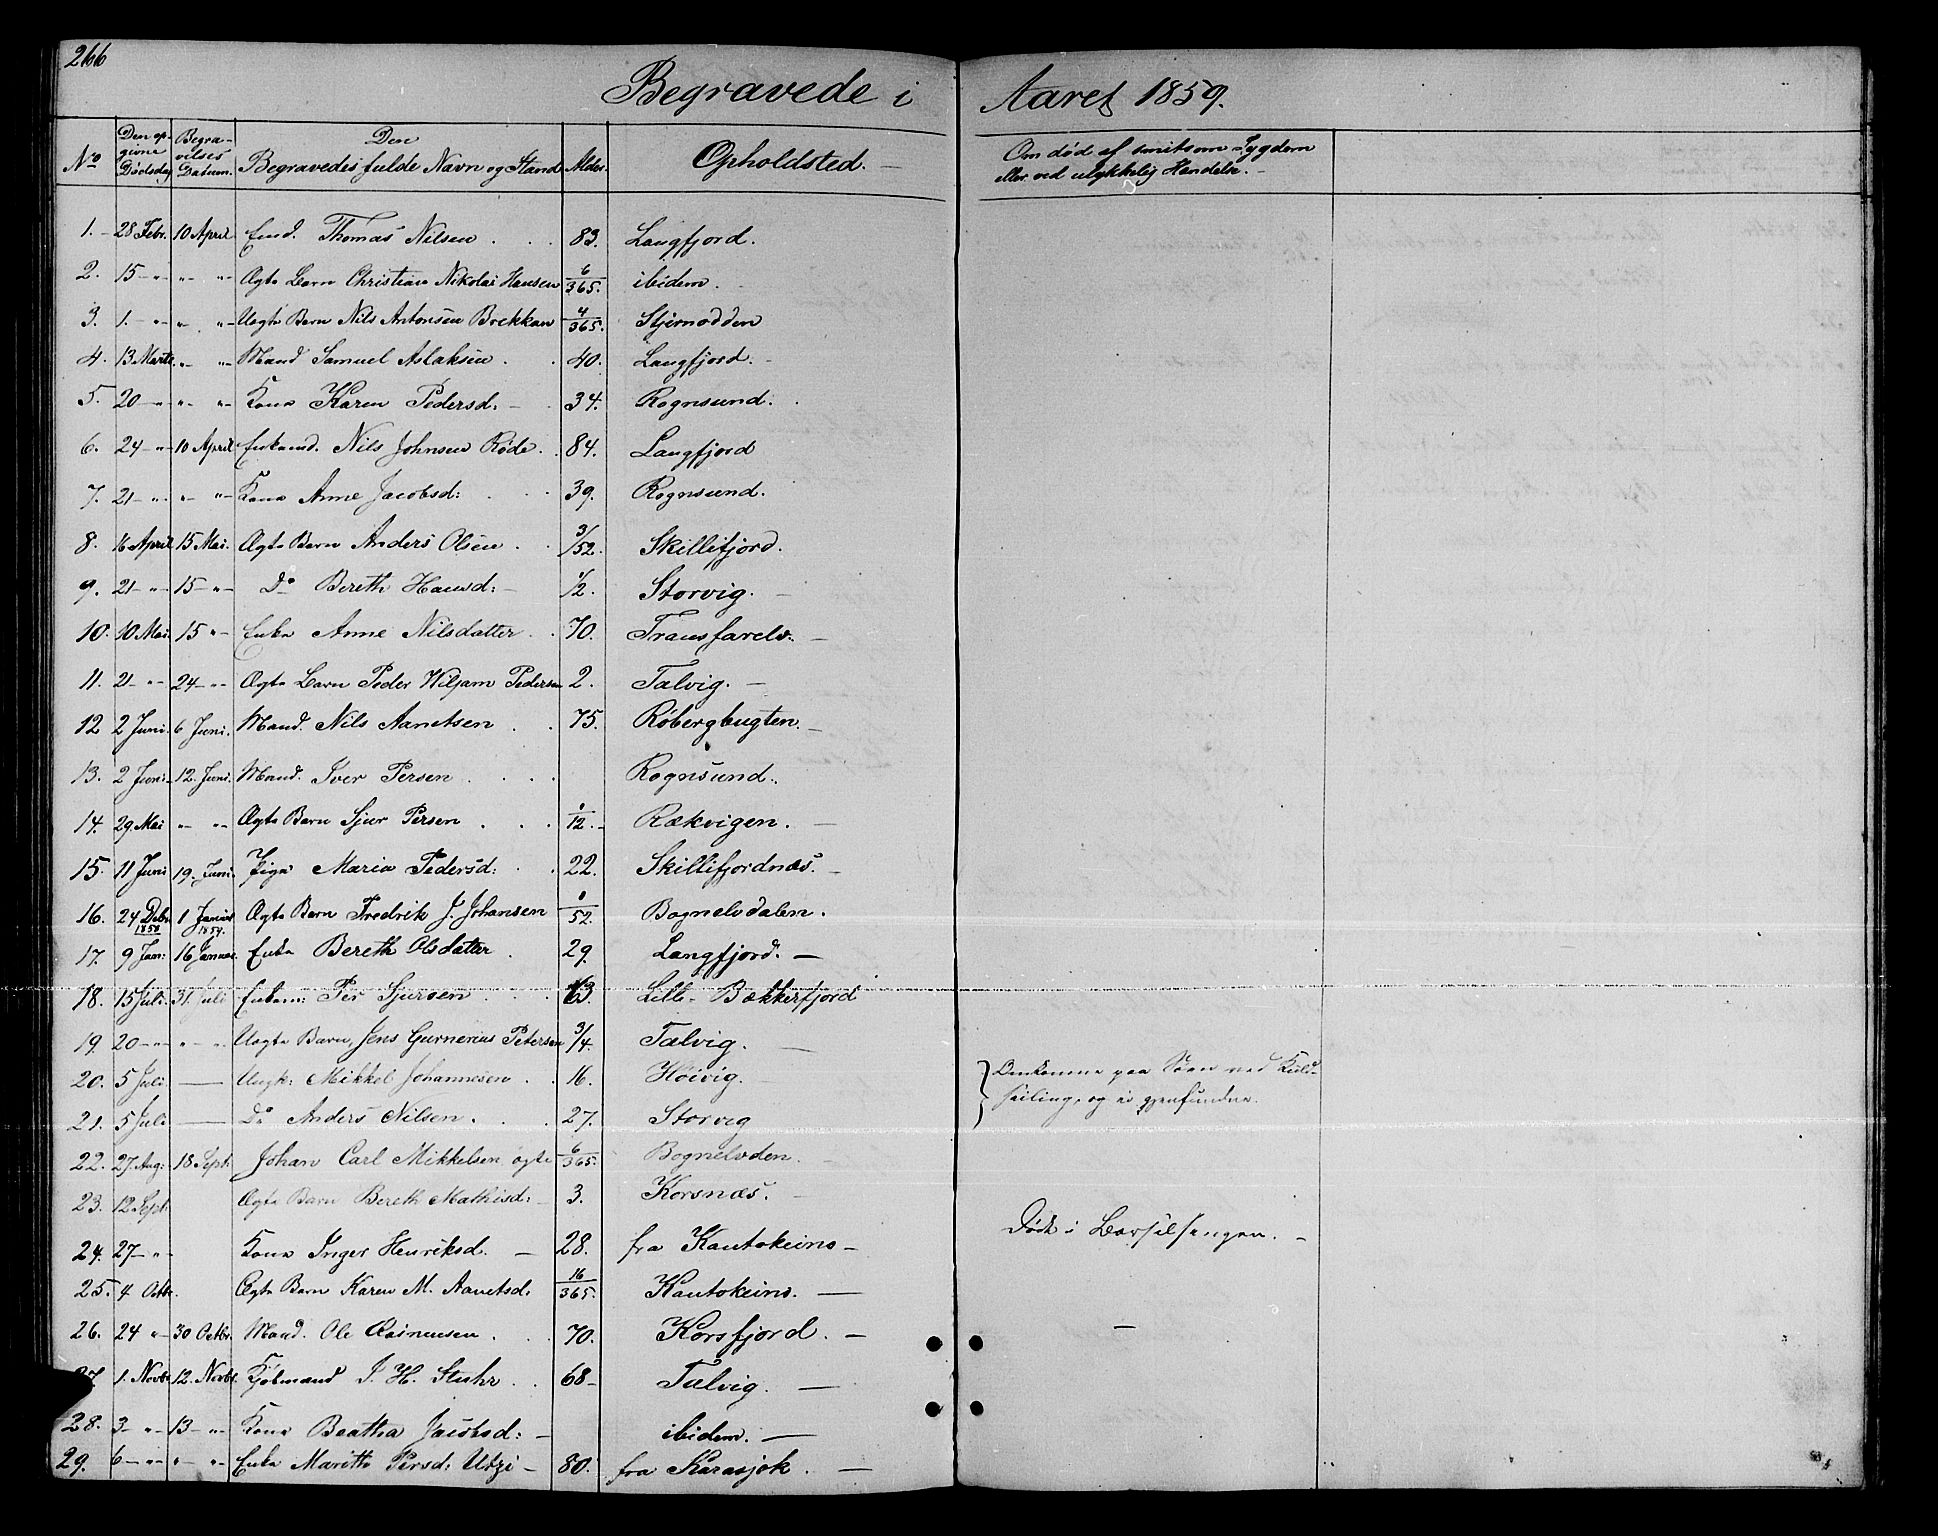 266
Begravede i Aaret 1859.
No Den opgivne Dødsdag Begravelses Datum. Den Begravedes fulde Navn og Stand Alder. Opholdsted. Om død af smitsom Sygdom eller ved ulykkelig Hændelse.
1. 28 Febr. 10 April Thomas Nilsen 83. Langfjord.
2. 15 - " - " " - Ægte Barn Christian Nikolai Hansen 6/365. ibidem.
3. 1. - " - " " - Uægte Barn Nils Antonsen Brekkan 4/365. Stjernodden
4. 13 Marts " - " - Mand Samuel Aslaksen 40. Langfjord.
5. 20 - " - " " - Kone Karen Pedersd: 34. Rognsund.
6. 24 - " - 10 April Enkemd. Nils Johnsen Røde 84. Langfjord
7. 21 - " - " " - Kone Anne Jacobsd: 39. Rognsund.
8. 16 April 15 Mai. Ægte Barn Anders Olsen 3/52. Skillifjord.
9. 21 - " - 15 - " - Do Bereth Hansd: 1/2. Storvig.
10. 10 Mai 15 " - Enke Anne Nilsdatter 70. Transfarelv.
11. 21 - " - 24 - " - Ægte Barn Peder Wiljam Pedersen 2. Talvig.
12 2 Juni. 6 Juni. Mand. Nils Aanetsen 75. Røbergbugten.
13. 2 Juni 12. Juni. Mand. Iver Persen Rognsund.
14. 29. Mai " - " - Ægte Barn Sjur Persen /12. Rækvigen.
15. 11 Juni 19. Juni. Pige Maria Pedersd: 22. Skillifjordnæs.
16. 24 Debr 1858 1 Januar 1859. Ægte Barn Fredrik J. Johansen /52. Bognelvdalen.
17. 9 Jan: 16 Januar. Enke Bereth Olsdatter 29. Langfjord.
18. 15 Juli. 31. Juli Enkem: Per Sjursen 63. Lille-Bækkerfjord
19. 20 - " - " - " Uægte Barn, Jens Gurnerius Petersen 3/4. Talvig.
20. 5 Juli. — Ungk: Mikkel Johannesen 16. Høivig. Omkomne paa Søen ved Kuld-
21. 5 Juli — Do Anders Nilsen. 27. Storvig seiling, og ei gjenfundne.
22. 27. Aug: 18 Sept. Johan Carl Mikkelsen, ægte 6/365. Bognelvden.
23. 12 Sept: Ægte Barn Bereth Mathisd: 3. Korsnæs.
24. 27 - " Kone Inger Henriksd. 28. fra Kautokeino Død i Barselsengen.
25. 4 Octbr. Ægte Barn Karen M. Aanetsd. 16/365. Kautokeino.
26. 24 " - 30 Octbr. Mand. Ole Rasmusen 70. Korsfjord.
27. 1. Novbr. 12. Novbr. Kjøbmand J. H. Stuhr 68 - Talvig.
28. 3 - " - 13 - " - Kone Beatha Jacobsd: ibidem.
29. 6 - " - " - " Enke Marith Persd: Utzi 80. fra Karasjok.